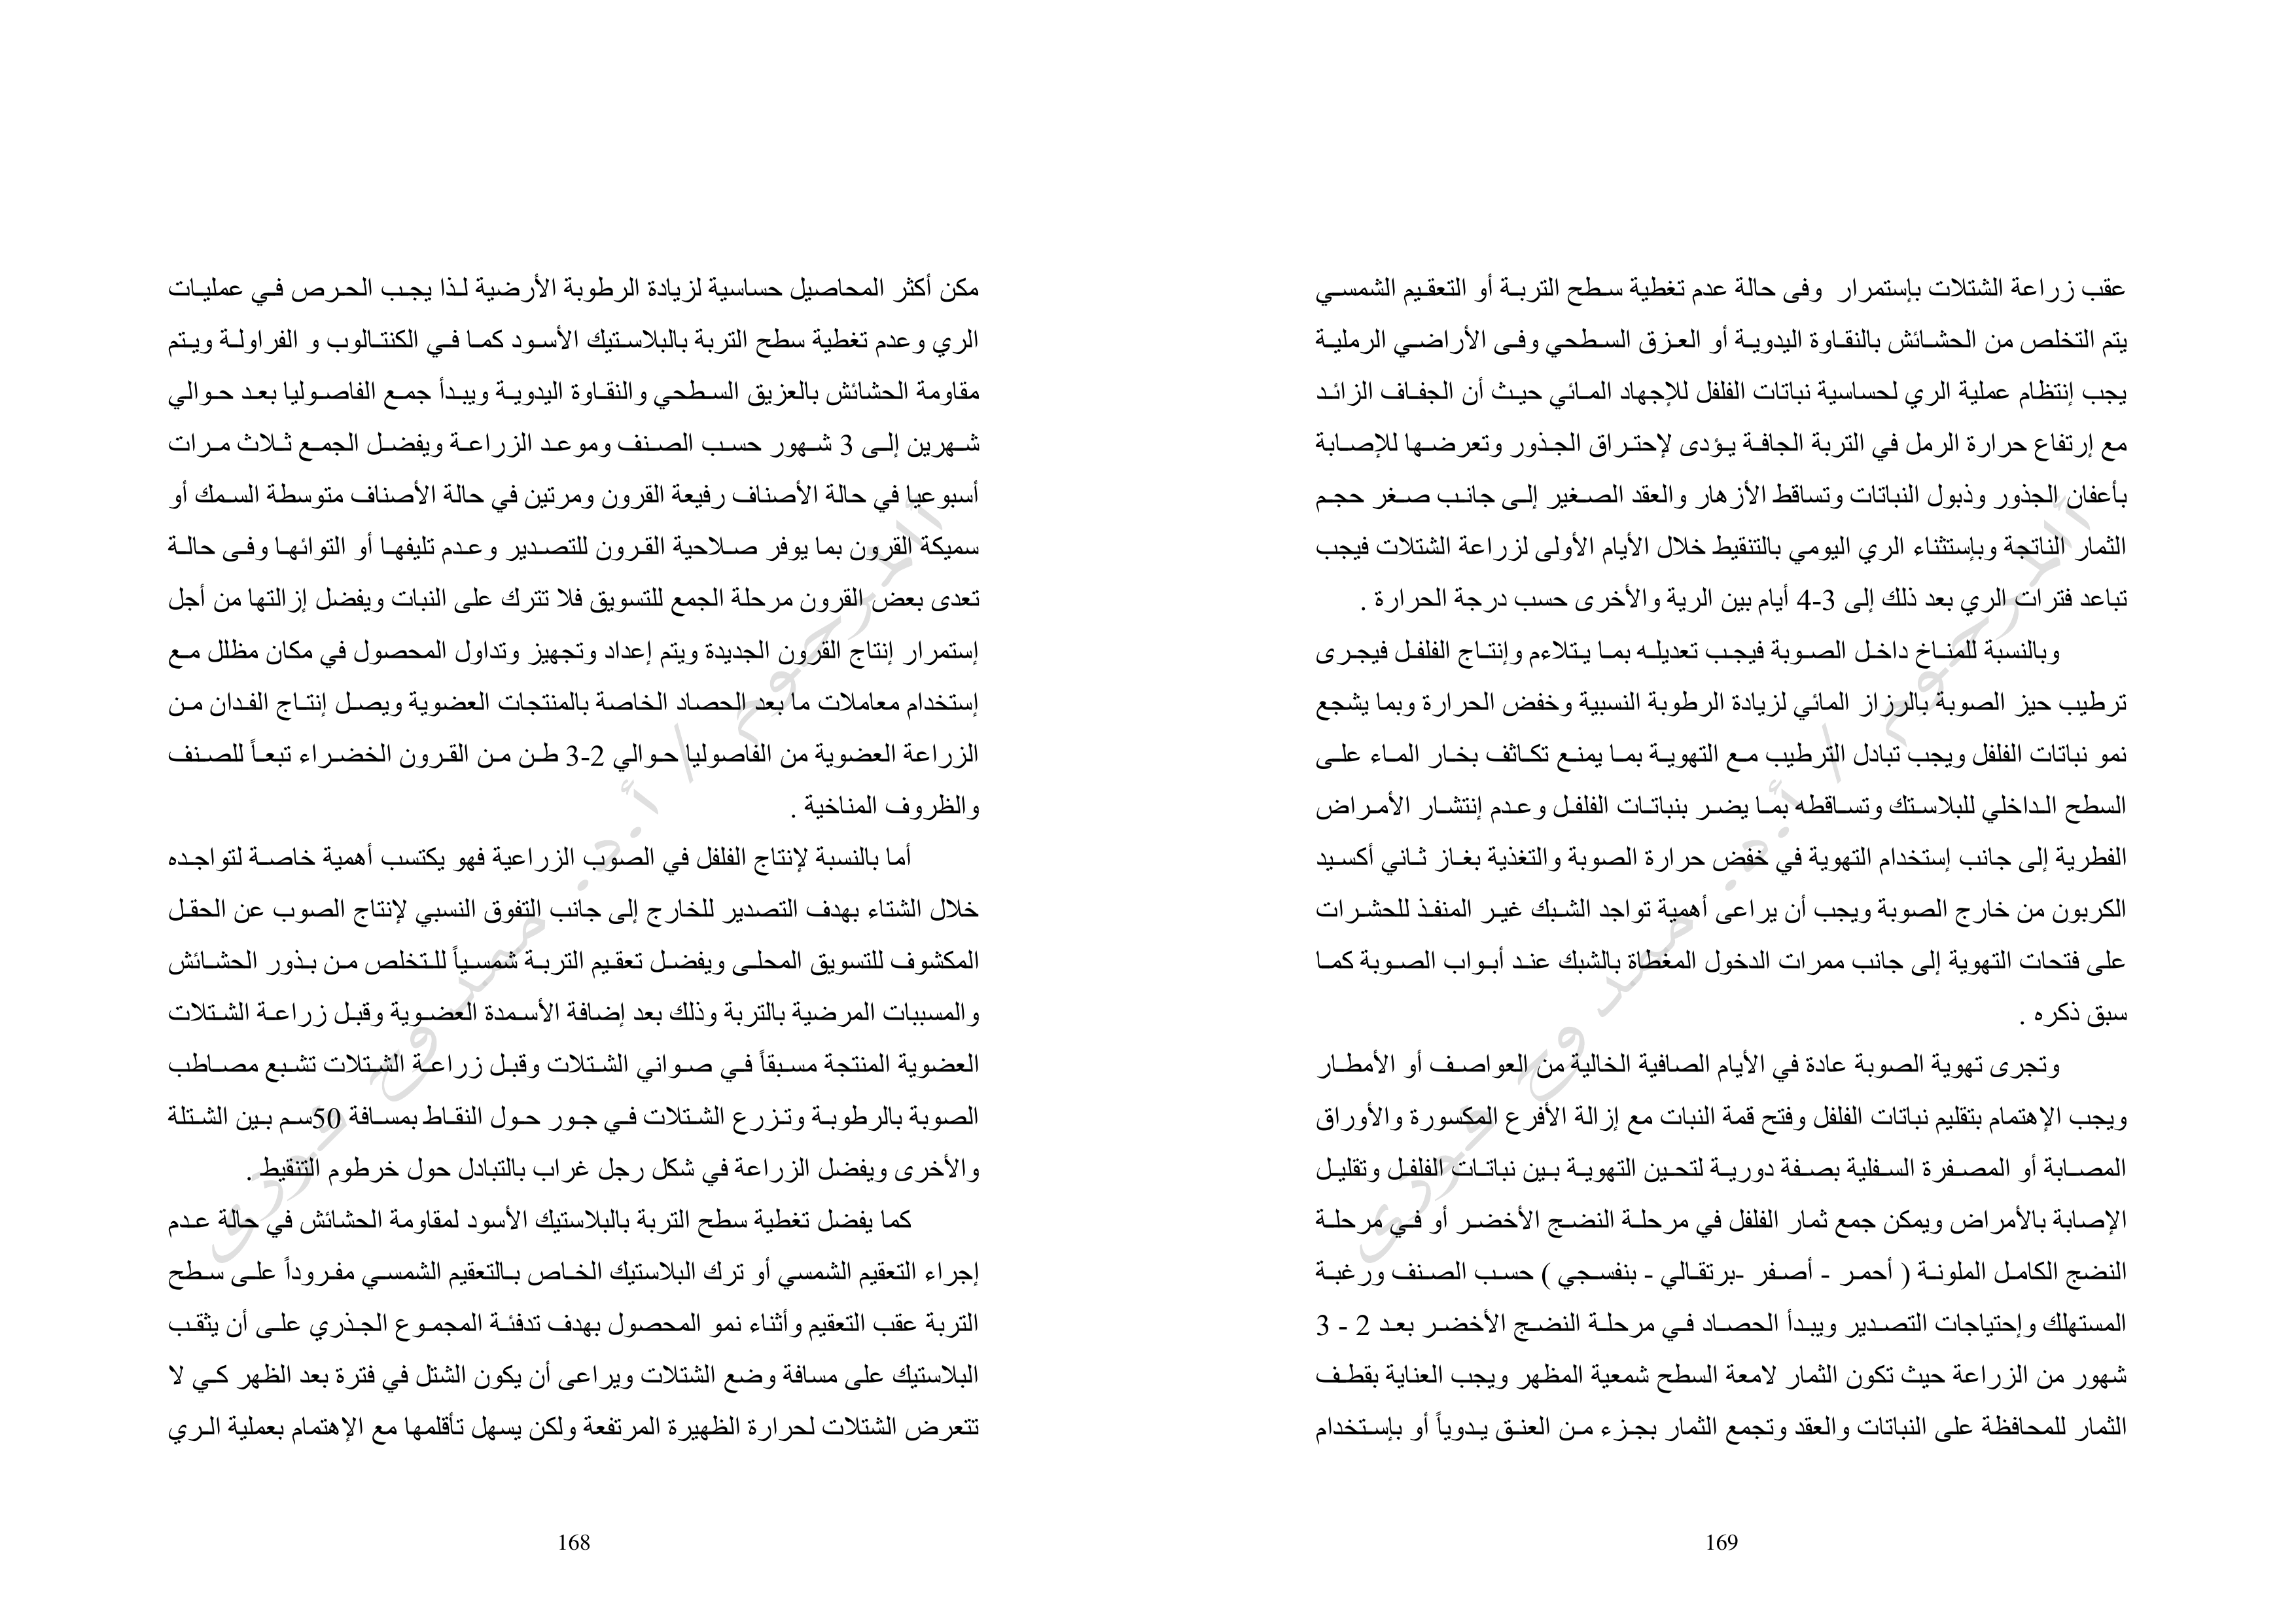 مكن أكثر المحاصيل حساسية لزيادة الرطوبة الأرضية لذا يجب الحرص في عمليات
الري وعدم تغطية سطح التربة بالبلاستيك الأسود كما في الكنتالوب و الفراولة ويتم
مقاومة الحشائش بالعزيق السطحي والنقاوة اليدوية ويبدأ جمع الفاصوليا بعد حوالي
شهرين إلى 3 شهور حسب الصنف وموعد الزراعة ويفضل الجمع ثلاث مرات
أسبوعيا في حالة الأصناف رفيعة القرون ومرتين في حالة الأصناف متوسطة السمك أو
سميكة القرون بما يوفر صلاحية القرون للتصدير وعدم تليفها أو التوائها وفى حالة
تعدى بعض القرون مرحلة الجمع للتسويق فلا تترك على النبات ويفضل إزالتها من أجل
إستمرار إنتاج القرون الجديدة ويتم إعداد وتجهيز وتداول المحصول في مكان مظلل مع
إستخدام معاملات ما بعد الحصاد الخاصة بالمنتجات العضوية ويصل إنتاج الفدان من
الزراعة العضوية من الفاصوليا حوالي 2-3 طن من القرون الخضراء تبعاً للصنف
والظروف المناخية .
أما بالنسبة لإنتاج الفلفل في الصوب الزراعية فهو يكتسب أهمية خاصة لتواجده
خلال الشتاء بهدف التصدير للخارج إلى جانب التفوق النسبي لإنتاج الصوب عن الحقل
المكشوف للتسويق المحلى ويفضل تعقيم التربة شمسياً للتخلص من بذور الحشائش
والمسببات المرضية بالتربة وذلك بعد إضافة الأسمدة العضوية وقبل زراعة الشتلات
العضوية المنتجة مسبقاً في صواني الشتلات وقبل زراعة الشتلات تشبع مصاطب
الصوبة بالرطوبة وتزرع الشتلات في جور حول النقاط بمسافة 50سم بين الشتلة
والأخرى ويفضل الزراعة في شكل رجل غراب بالتبادل حول خرطوم التنقيط .
كما يفضل تغطية سطح التربة بالبلاستيك الأسود لمقاومة الحشائش في حالة عدم
إجراء التعقيم الشمسي أو ترك البلاستيك الخاص بالتعقيم الشمسي مفروداً على سطح
التربة عقب التعقيم وأثناء نمو المحصول بهدف تدفئة المجموع الجذري على أن يثقب
البلاستيك على مسافة وضع الشتلات ويراعى أن يكون الشتل في فترة بعد الظهر كي لا
تتعرض الشتلات لحرارة الظهيرة المرتفعة ولكن يسهل تأقلمها مع الإهتمام بعملية الري
168
عقب زراعة الشتلات بإستمرار وفى حالة عدم تغطية سطح التربة أو التعقيم الشمسي
يتم التخلص من الحشائش بالنقاوة اليدوية أو العزق السطحي وفى الأراضي الرملية
يجب إنتظام عملية الري لحساسية نباتات الفلفل للإجهاد المائي حيث أن الجفاف الزائد
مع إرتفاع حرارة الرمل في التربة الجافة يؤدى لإحتراق الجذور وتعرضها للإصابة
بأعفان الجذور وذبول النباتات وتساقط الأزهار والعقد الصغير إلى جانب صغر حجم
الثمار الناتجة وبإستثناء الري اليومي بالتنقيط خلال الأيام الأولى لزراعة الشتلات فيجب
تباعد فترات الري بعد ذلك إلى 3-4 أيام بين الرية والأخرى حسب درجة الحرارة .
وبالنسبة للمناخ داخل الصوبة فيجب تعديله بما يتلاءم وإنتاج الفلفل فيجرى
ترطيب حيز الصوبة بالرزاز المائي لزيادة الرطوبة النسبية وخفض الحرارة وبما يشجع
نمو نباتات الفلفل ويجب تبادل الترطيب مع التهوية بما يمنع تكاثف بخار الماء على
السطح الداخلي للبلاستك وتساقطه بما يضر بنباتات الفلفل وعدم إنتشار الأمراض
الفطرية إلى جانب إستخدام التهوية في خفض حرارة الصوبة والتغذية بغاز ثاني أكسيد
الكربون من خارج الصوبة ويجب أن يراعى أهمية تواجد الشبك غير المنفذ للحشرات
على فتحات التهوية إلى جانب ممرات الدخول المغطاة بالشبك عند أبواب الصوبة كما
سبق ذكره .
وتجرى تهوية الصوبة عادة في الأيام الصافية الخالية من العواصف أو الأمطار
ويجب الإهتمام بتقليم نباتات الفلفل وفتح قمة النبات مع إزالة الأفرع المكسورة والأوراق
المصابة أو المصفرة السفلية بصفة دورية لتحين التهوية بين نباتات الفلفل وتقليل
الإصابة بالأمراض ويمكن جمع ثمار الفلفل في مرحلة النضج الأخضر أو في مرحلة
النضج الكامل الملونة ( أحمر - أصفر -برتقالي - بنفسجي ) حسب الصنف ورغبة
المستهلك وإحتياجات التصدير ويبدأ الحصاد في مرحلة النضج الأخضر بعد 2 - 3
شهور من الزراعة حيث تكون الثمار لامعة السطح شمعية المظهر ويجب العناية بقطف
الثمار للمحافظة على النباتات والعقد وتجمع الثمار بجزء من العنق يدوياً أو بإستخدام
169
المرحوم / أ.د. ممدوح فوزى
المرحوم / أ.د. ممدوح فوزى